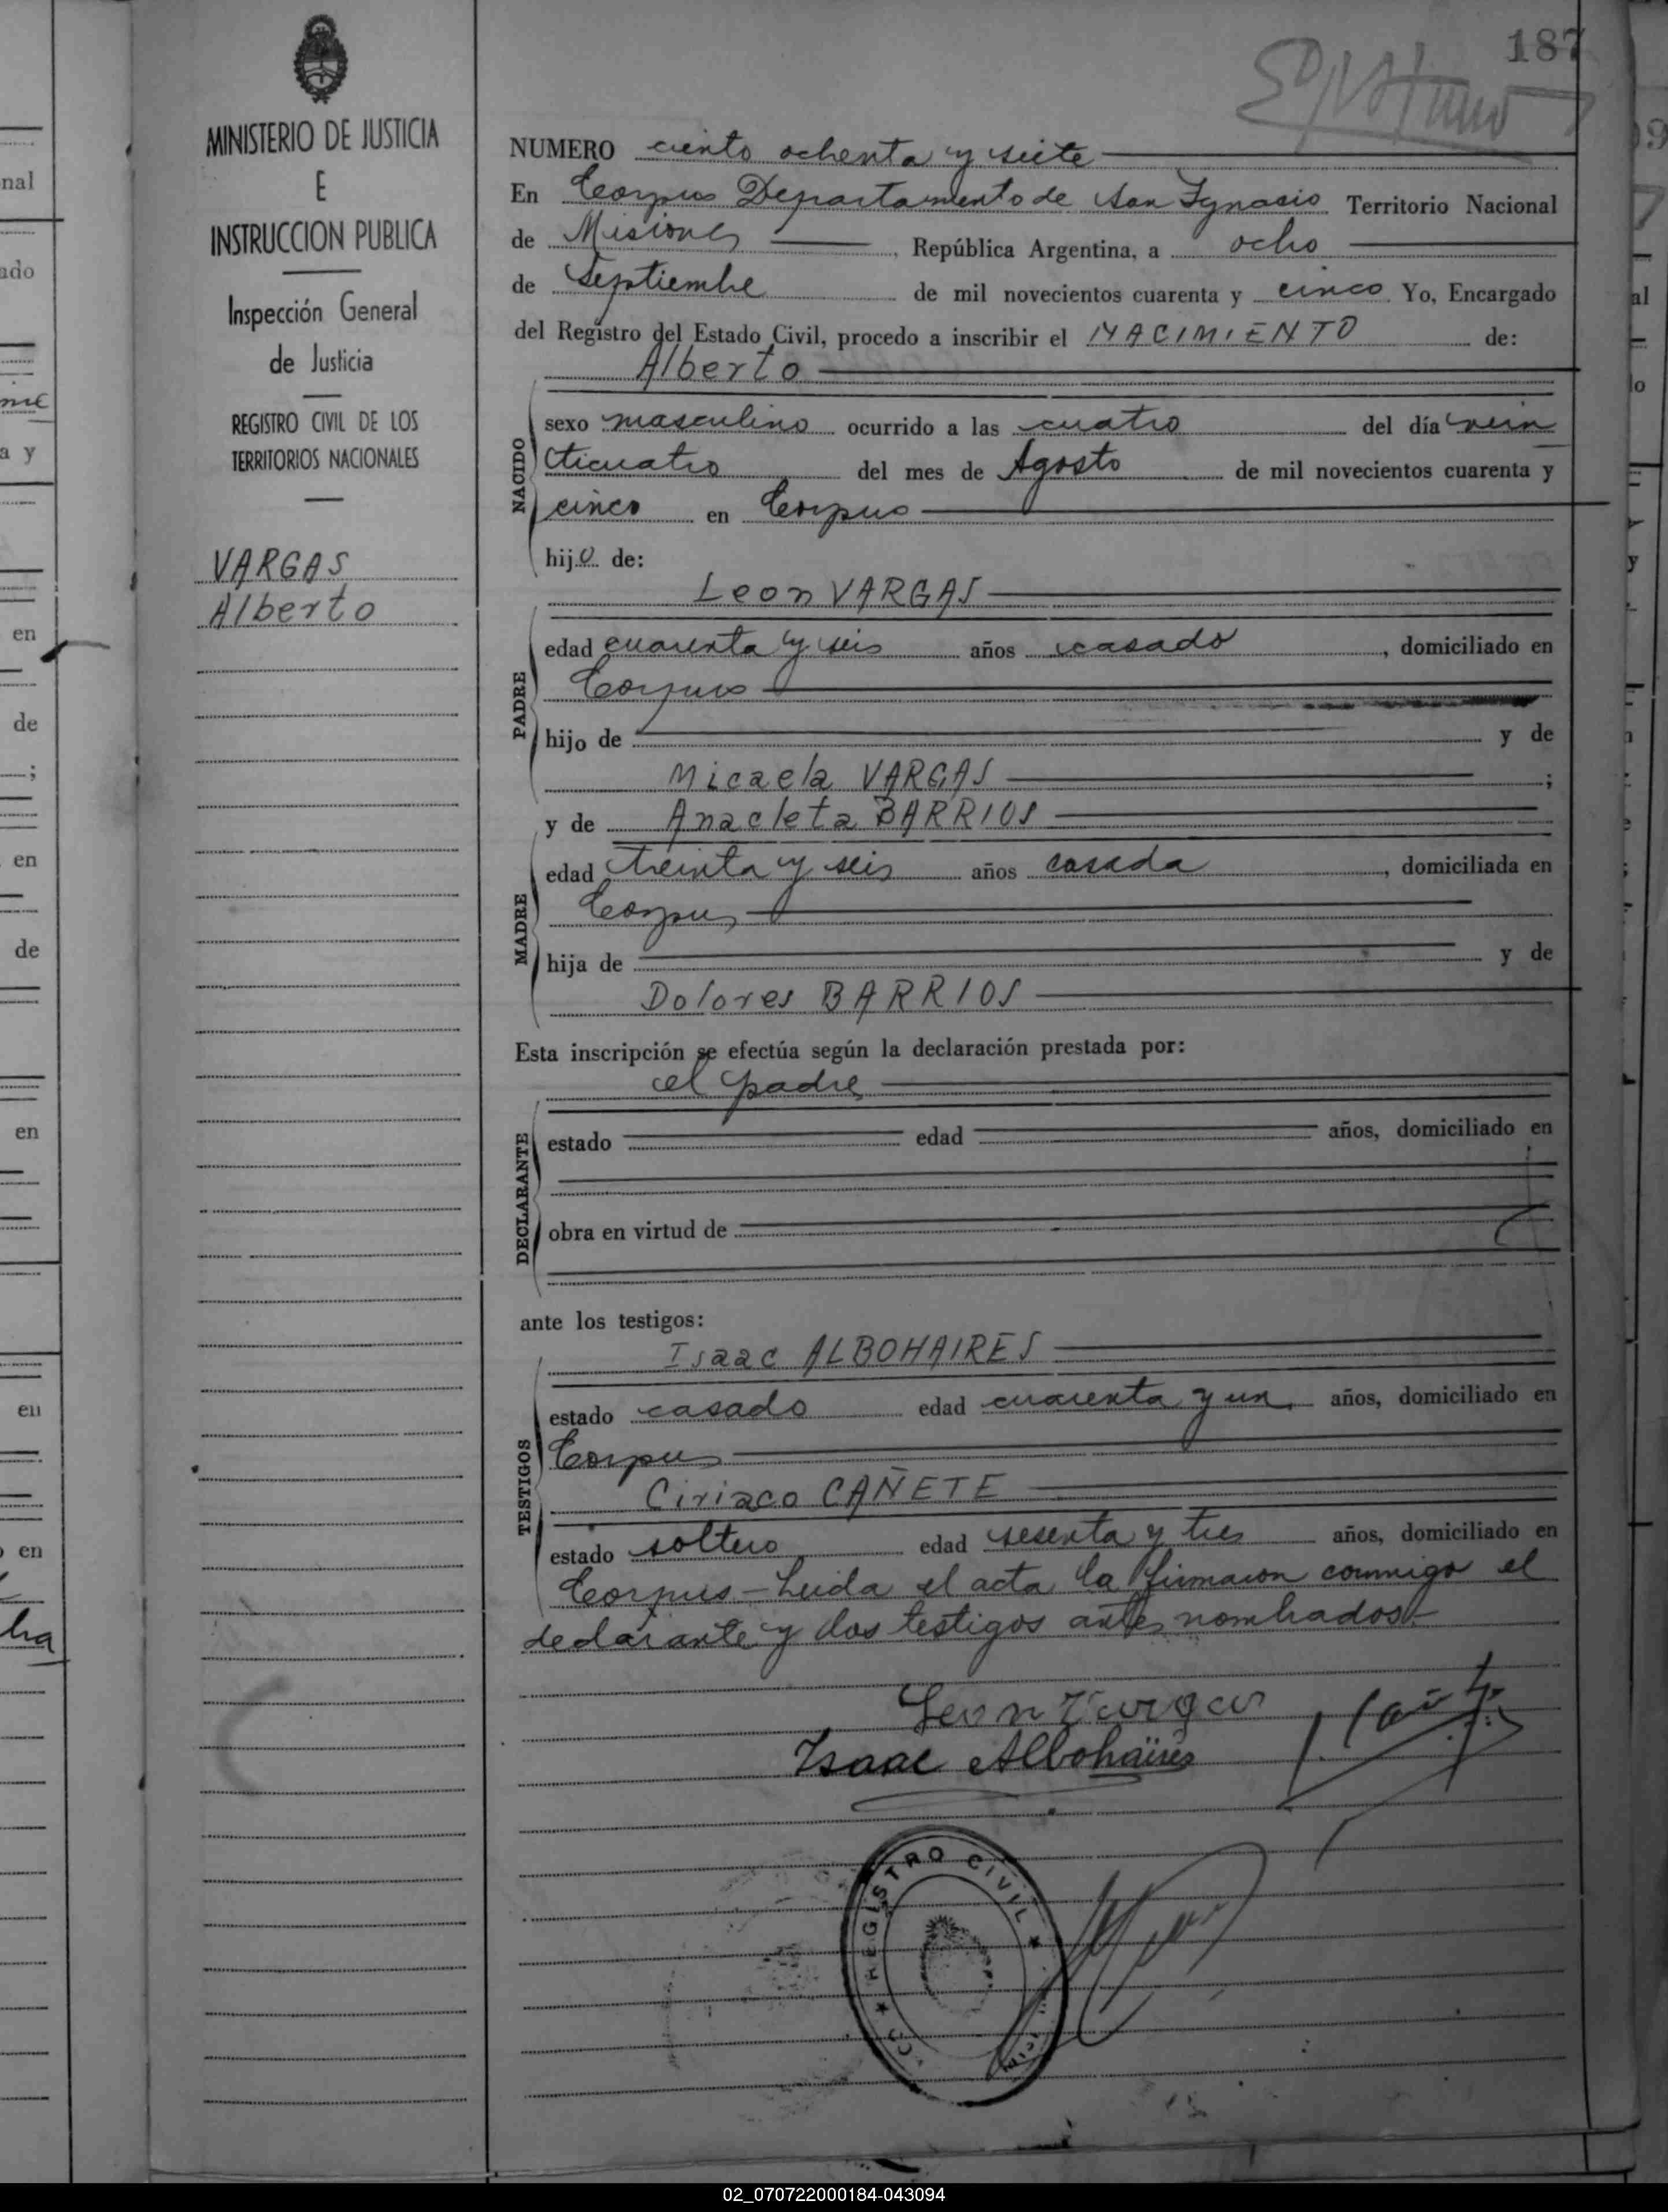 187
MINISTERIO DE JUSTICIA
E
INSTRUCCION PUBLICA
Inspección General
de Justicia
REGISTRO CIVIL DE LOS
TERRITORIOS NACIONALES
VARGAS
Alberto
NUMERO ciento ochenta y siete
En Corpus Departamento de San Ignacio Territorio Nacional
de Misiones, República Argentina, a ocho
de Septiembre de mil novecientos cuarenta y cinco. Yo, Encargado
del Registro del Estado Civil, procedo a inscribir el NACIMIENTO de:
Alberto
NACIDO
sexo masculino ocurrido a las cuatro del día vein
ticuatro del mes de Agosto de mil novecientos cuarenta y
cinco en Corpus
hijo de:
Leon VARGAS
PADRE
edad cuarenta y seis años casado, domiciliado en
Corpus
hijo de y de
Micaela VARGAS ;
y de Anacleta BARRIOS
MADRE
edad treinta y seis años casada, domiciliada en
Corpus
hija de y de
Dolores BARRIOS
Esta inscripción se efectúa según la declaración prestada por:
el padre
DECLARANTE
estado edad años, domiciliado en
obra en virtud de
ante los testigos:
Isaac ALBOHAIRES
TESTIGOS
estado casado edad cuarenta y un años, domiciliado en
Corpus
Ciriaco CAÑETE
estado soltero edad sesenta y tres años, domiciliado en
Corpus - Leida el acta la firmaron conmigo el
declarante y los testigos antes nombrados.-
Leon Vargas
Isaac Albohaires
REGISTRO CIVIL
02_070722000184-043094